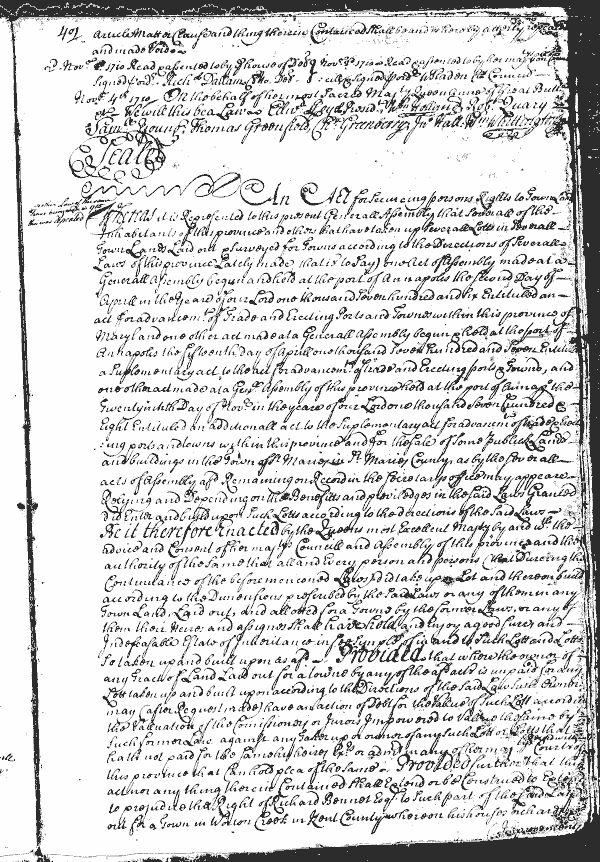 401 Article Matter Clause and thing therein Contained shall be and is hereby utterly
and made Void
Nov.r 1710 Read & assented to by ye house of Del. Nov.r 1710 Read & assented to by her maj.tys hon.ble Councill
Signed p ord.r Rich.d Dallam Signed p ord.r W Bladen Cl Councill
Nov.r 4th 1710 On the behalf of her most Sacred Maj.ty Queen Anne of Great Brittain
&c We will this be a Law Edw.d Lloyd Presid.t W.m Holland Rob.t Quary
Sam.ll Young Thomas Greenfield Ch.r Granberry Jn.o Hall W.m Whittington
Seale
An Act for Securing persons Rights to Town Land
Whereas it is Represented to this present Generall Assembly that Severall of the
Inhabitants of this province and others that have taken up Severall Lotts in Severall
Town Lands Laid out & Surveyed for Towns according to the Directions of Severall
Laws of this province Lately made that is to Say one Act of Assembly made at a
Generall Assembly begun and held at the port of Annapolis the Second Day of
Aprill in the Year of our Lord one thousand Seven hundred and Six Entituled an
act for advancem.t of Trade and Erecting Ports and Towns within this province of
Maryland one other act made at a Generall Assembly begun & held at the port of
Annapolis the fifteenth Day of Aprill one thousand Seven hundred and Seven Entituled
a Suplementary act to the act for advancem.t of trade and Erecting ports & Towns, and
one other act made at a Gen.ll Assembly of this province held at the port of Annap.s the
Twenty ninth Day of Nov.r in the year of our Lord one thousand Seven hundred &
Eight Entituled an additionall act to the Suplementary act for advancem.t of trade & Erect
:ing ports and towns within this province and for the Sale of Some Publick Lands
and buildings in the Town of St. Maries in St. Maries County, as by the Severall
acts of Assembly afd. Remaining on Record in the Secretarys office may appear
Relying and Depending on the Benefitts and priviledges in the Said Laws Granted
did Enter and build upon Such Lotts according to the directions of the Said Laws
Be it therefore Enacted by the Queens most Excellent Maj.ty by and w.th the
advice and Consent of her maj.tys Councill and Assembly of this province and the
authority of the Same that all and Every person and persons that Dureing the
Continuance of the before mencõned Laws did take up a Lot and thereon build
according to the Dimensions prescribed by the Said Laws or any of them in any
Town Land, Laid out, and allotted for a Towne by the former Laws, or any of
them their Heires and assignes Shall have hold and Enjoy a good Sure and
Indefeasable Estate of Inheritance in fee Simple of in and to Such Lott and Lotts
So taken up and built upon as afd. Provided that where the owner of
any Tract of Land Laid out for a towne by any of the afd. acts is unpaid for any
Lott taken up and built upon according to the Directions of the Said Law Such Owner
may (after Request made) have an action of Debt for the Value of Such Lott according
the Valuation of the Comissioners or Jurors Impowered to Value the Same by
Such former Law against any taker up or owner of any Such Lott or Lotts that
hath not paid for the Same his heires Ex.rs or adm.rs in any of her maj.tys Courts of
this province that Can hold plea of the Same Provided further that this
act nor any thing therein Contained Shall Extend or be Construed to Extend
to prejudice the Right of Richard Bennet Esq.r to Such part of the Land Laid
out for a Town in Worton Creek in Kent County whereon his house orchard